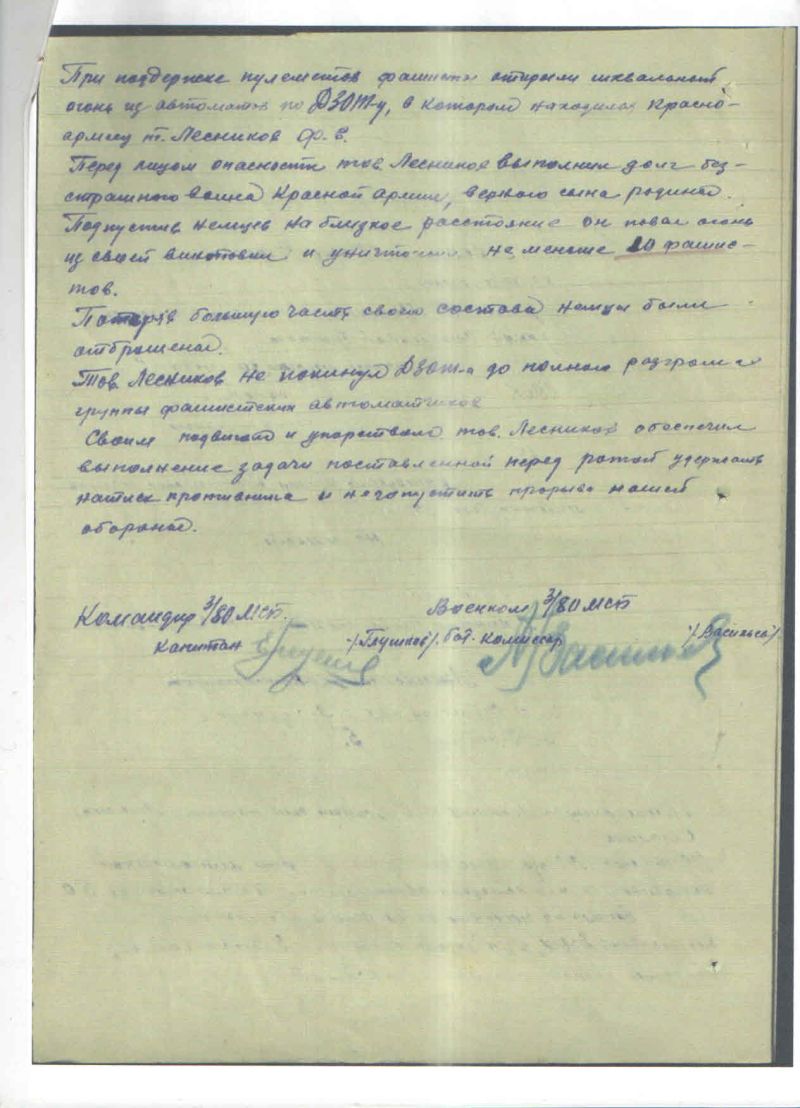 При поддержке пулеметов фашисты открыли шквальный
огонь из автоматов по ДЗОТ-у, в котором находился красно-
армеец т. Лесников Ф. Е.
Перед лицом опасности тов. Лесников выполнил долг без-
страшного воина Красной армии, верного сына родины.
Подпустив немцев на близкое расстояние он повел огонь
из своей винтовки и уничтожил не меньше 20 фашис-
тов.
Потеряв большую часть своего состава немцы были
отброшены.
Тов. Лесников не покинул ДЗОТ-а до полного разгрома
группы фашистских автоматчиков
Своим подвигом и упорством тов. Лесников обеспечил
выполнение задачи поставленной перед ротой удержать
натиск противника и недопустить прорыва нашей
обороны.
Командир 3/80 МСП. Военком 3/80 МСП
капитан /Глушков/. бат. комиссар /Васильев/.